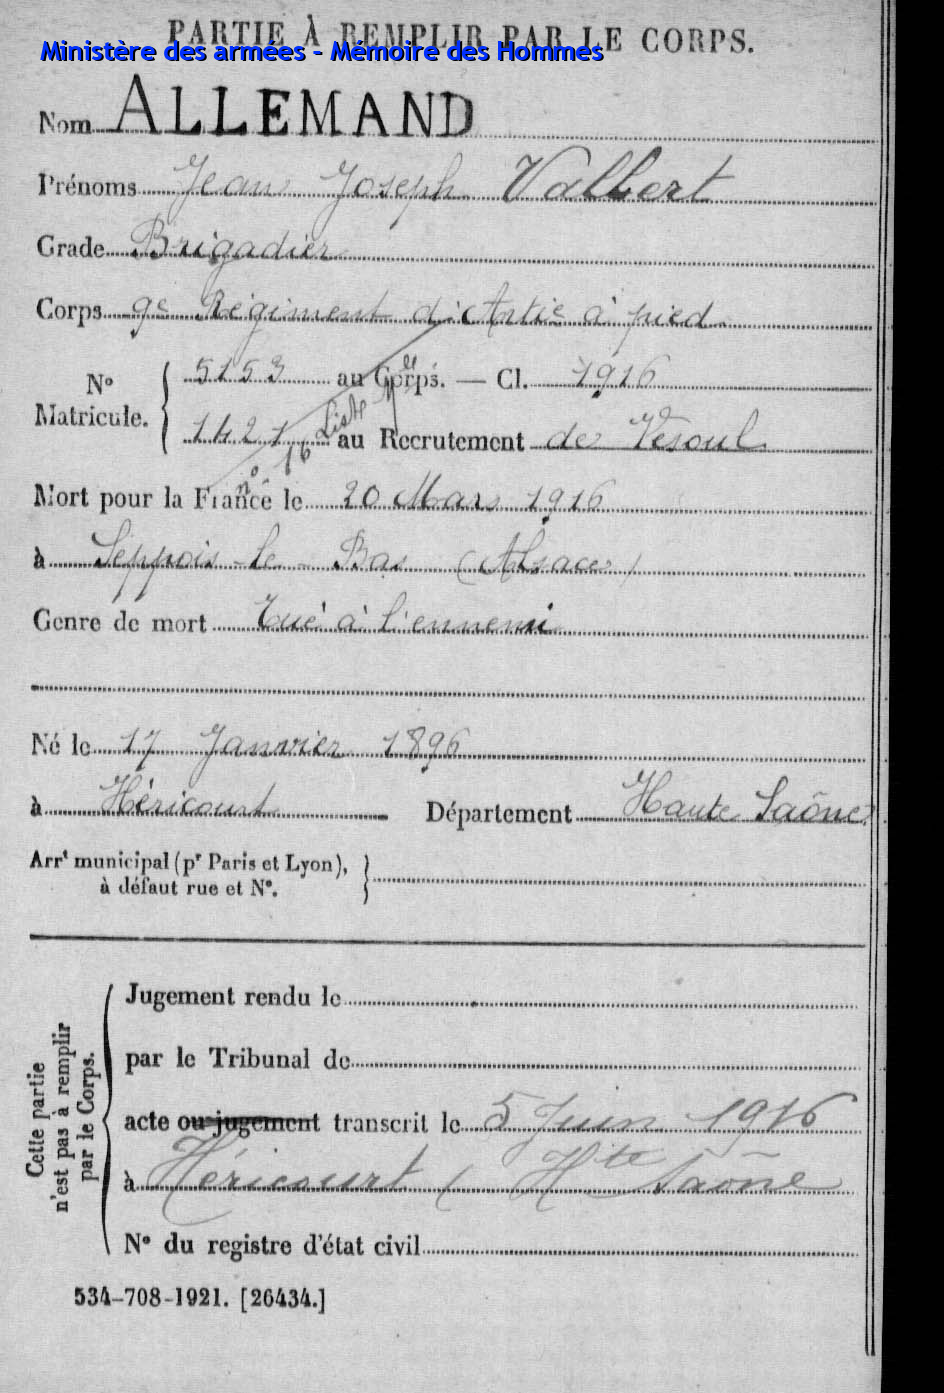 PARTIE À REMPLIR PAR LE CORPS.
Ministère des armées - Mémoire des Hommes
Nom ALLEMAND
Prénoms Jean Joseph Valbert
Grade Brigadier
Corps 9e Régiment d'Artie à pied
N° Matricule. { 5153 au Corps. — Cl. 1916
1421 au Recrutement de Vesoul
n° 16 Liste
Mort pour la France le 20 Mars 1916
à Seppois-le-Bas (Alsace)
Genre de mort Tué à l'ennemi
Né le 17 Janvier 1896
à Héricourt Département Haute Saône
Arrt municipal (pr Paris et Lyon),
à défaut rue et N°.
Cette partie
n'est pas à remplir
par le Corps.
Jugement rendu le
par le Tribunal de
acte ou jugement transcrit le 5 Juin 1916
à Héricourt (Hte Saône
N° du registre d'état civil
534-708-1921. [26434.]